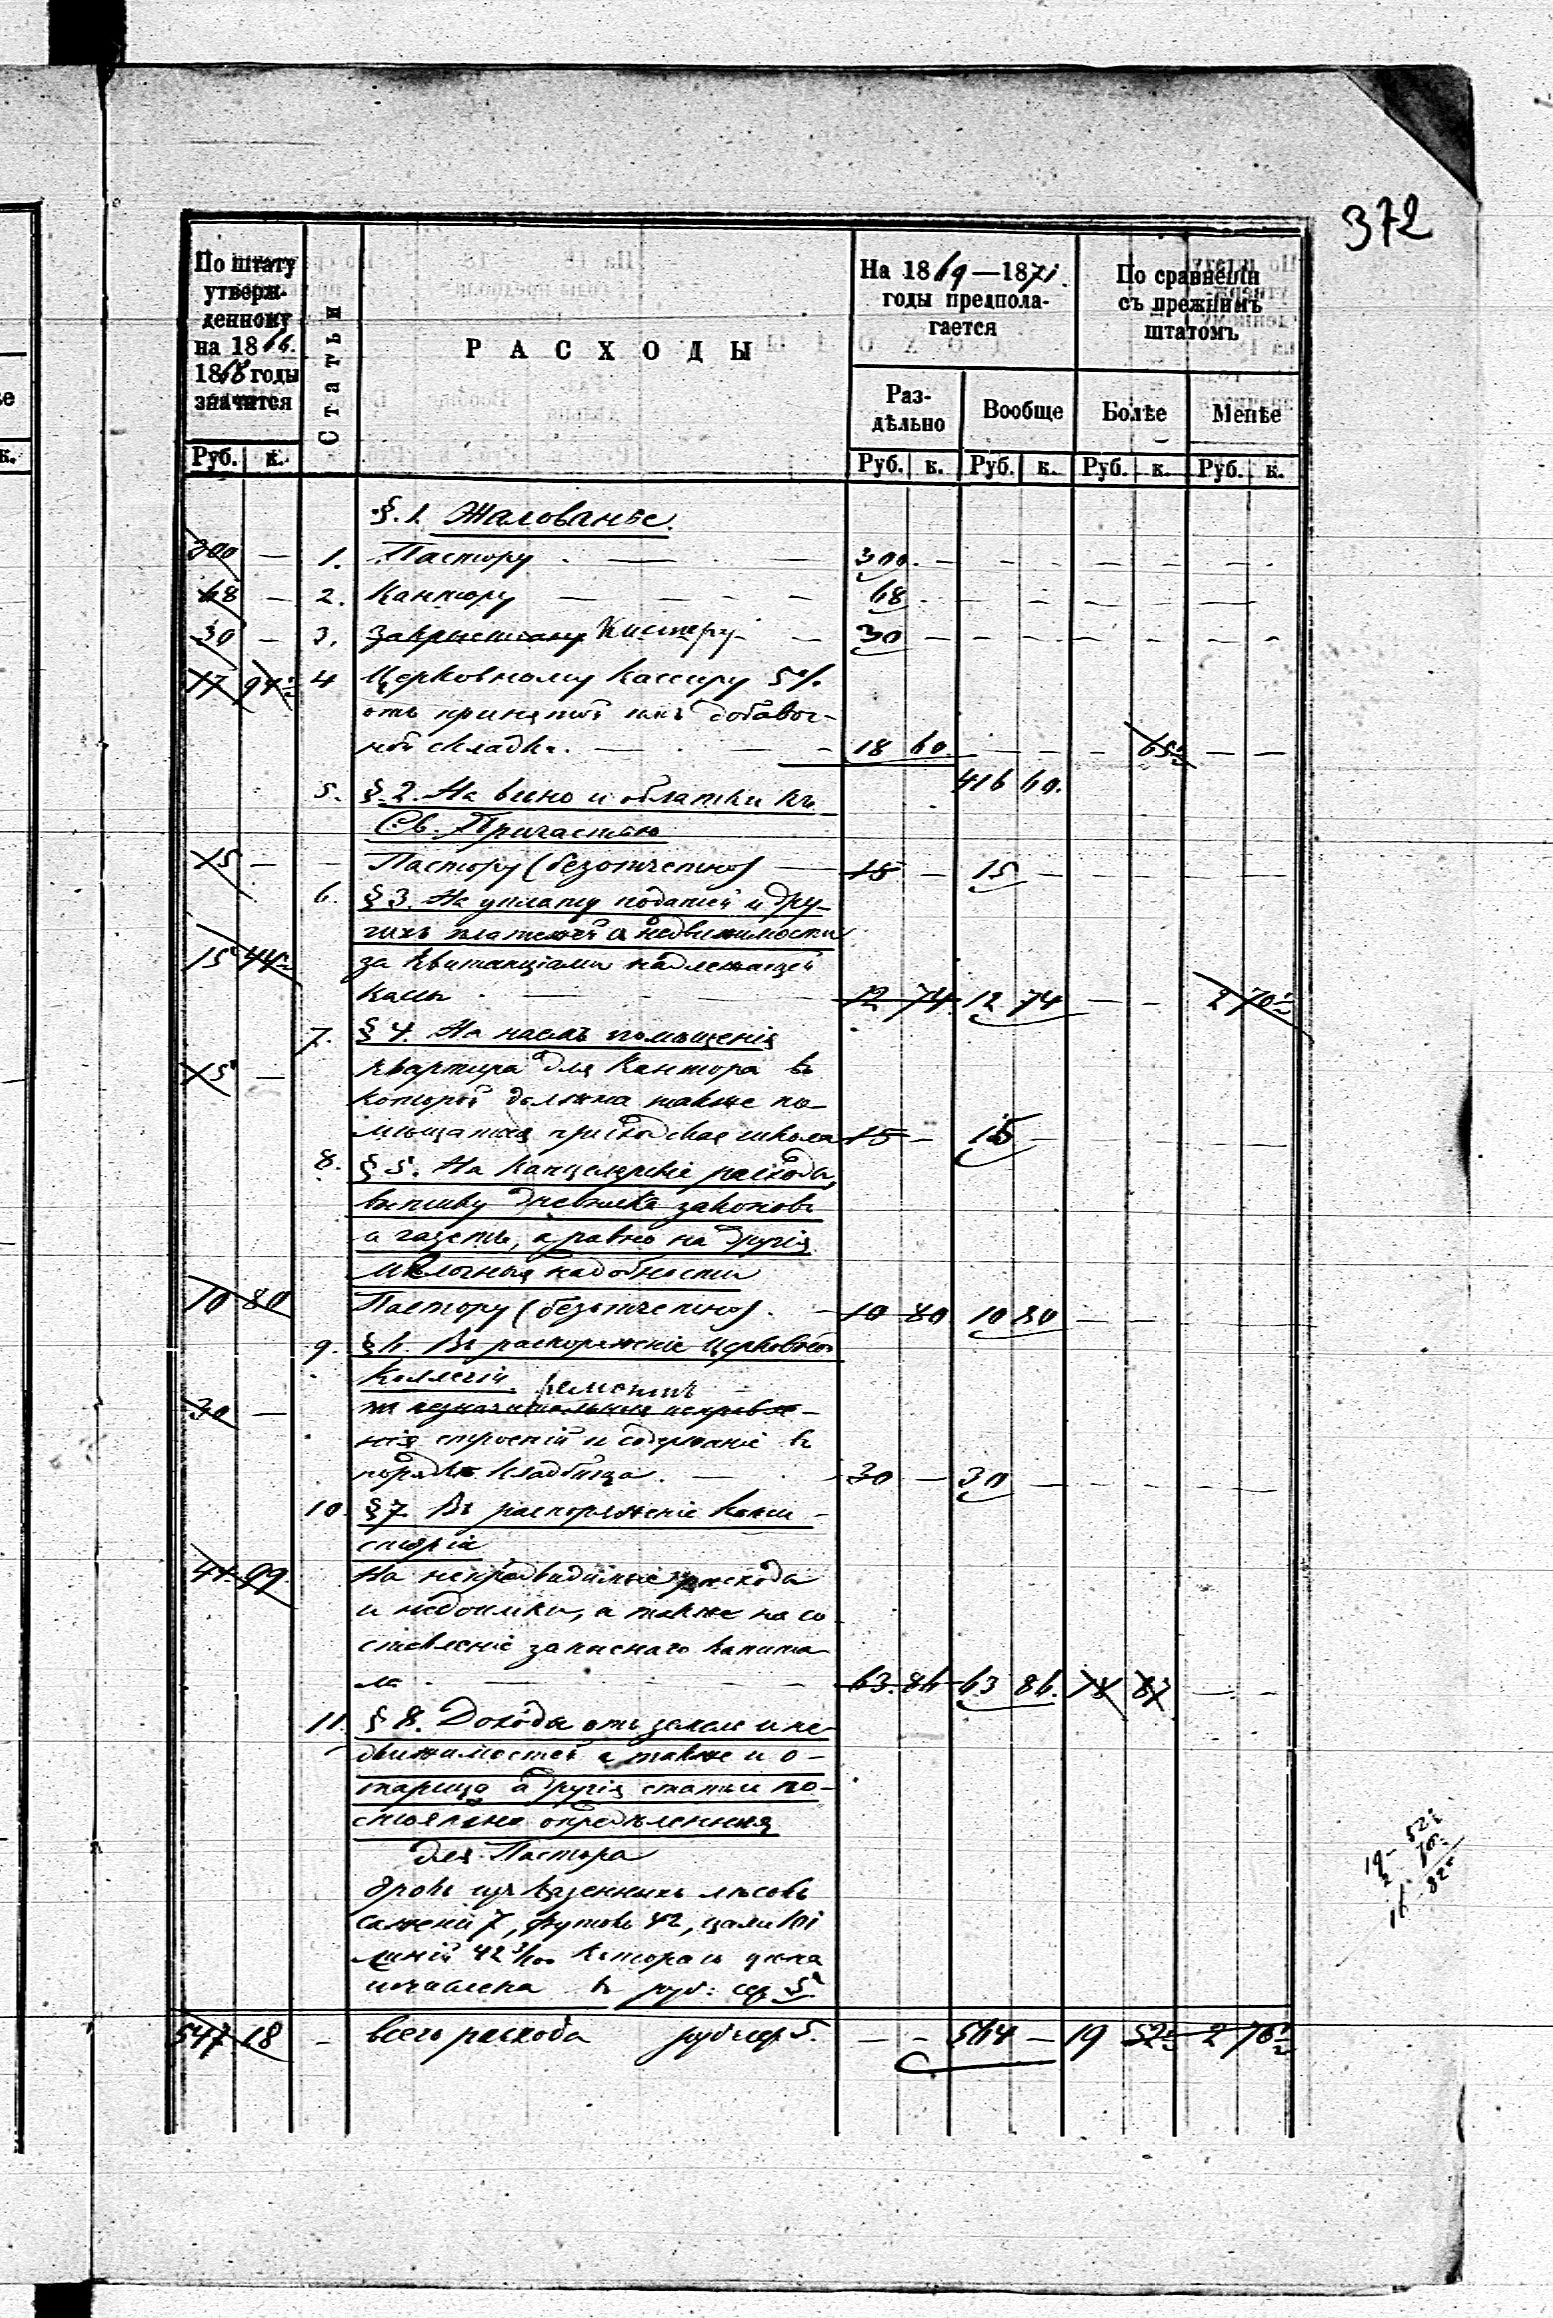 372
По штату утверж-денному на 1866. 1868 годы значится
Статьи
РАСХОДЫ
На 1869—1871. годы предпола-гается
По сравненiи съ прежнимъ штатомъ
Раз-дѣльно
Вообще
Болѣе
Менѣе
Руб. к.
Руб. к. Руб. к. Руб. к. Руб. к.
§. 1. Жалованье.
300 — 1. Пастору — 300. —
68 — 2. Кантору — 68
30 — 3. Кистеру — 30 —
17 94½ 4 Церковному Кассиру 5%
отъ принятой имъ добавоч-
ной складки. — 18 60. — 65½ — —
416 60.
5. § 2. На вино и облатки къ
Св. Причастью
15 — — Пастору (безотчетно) — 15 — 15 —
6. § 3. На уплату податей и дру-
гихъ платежей недвижимости
15 44½ за квитанцiями надлежащей
кассы — 12 74. 12 74 — — 2 70½
7. § 4. На наемъ помѣщенiя
15 — квартира для Кантора въ
которой должна также по-
мѣщаться приходская школа 15 — 15 —
8. § 5. На канцелярскiе расходы,
выписку законовъ
а газеты, а равно на другiя
мѣлочныя надобности
10 80 Пастору (безотчетно). — 10 80 10 80 — —
9. § 6. Въ распоряженiе Церковной
Коллегiи. ремонтъ
30 — незначительныя исправле-
нiя строенiй и содержанiе въ
порядкѣ кладбища. — 30 — 30 —
10. § 7. Въ распоряженiе Конси-
сторiи
41 99. На непредвидимые расходы
и недоимки, а также на со-
ставленiе запаснаго капита-
ла. — 63. 86 63 86. 18 87 — —
11. § 8. Доходы отъ земель и не-
движимостей а также и о-
другiя статьи по-
стоянно опредѣленныя
для Пастора
дровъ изъ казенныхъ лѣсовъ
саженей 7, футовъ 42,
линiй 42
исчислена въ руб: сер. 5.
547 18 — всего расхода руб. сер 5. — — 564 — 19 52½ 2 76½